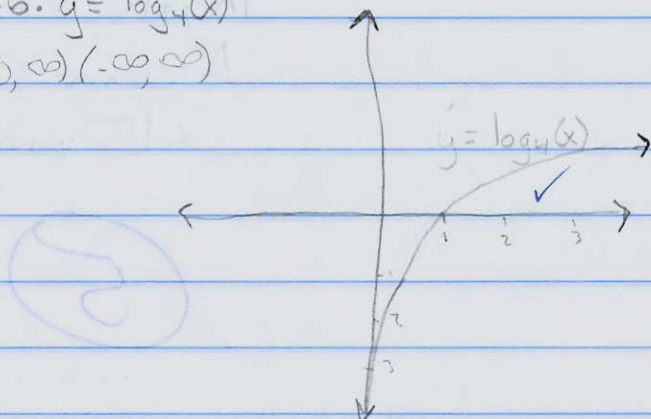 6. y = log₄(x)
, ∞) (-∞, ∞)
y = log₄(x)
1 2 3
1
2
3